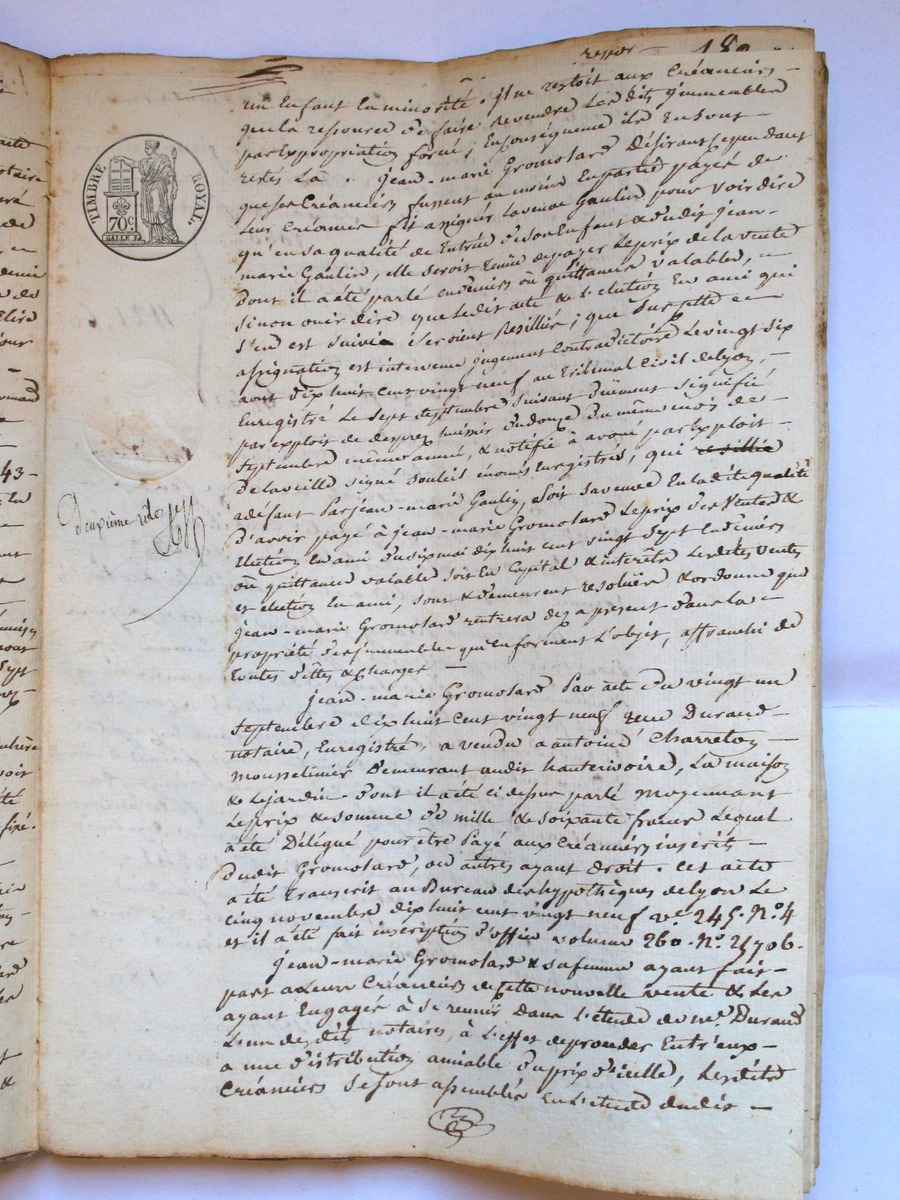 ressor
180
TIMBRE ROYAL.
70c
un Enfant En minorité. il ne restoit aux Créanciers
que la ressource de faire Revendre Les dits ymmeubles
par Expropriation forcé ; En conséquence ils En sont
restés là. jean-marie Gromolard Désirant cependant
que ses Créanciers fussent au moins En partie payés de
Leur Créance fit assigner la veuve Gaulin pour voir dire
qu'en sa qualité de Entrée de son Enfant & dudit jean-
marie Gaulin, elle seroit tenüe de payer Le prix de la vente
dont il a été parlé en deniers ou quittances valables,
sinon ouir dire que ledit acte & l'élection En ami qui
s'en est suivie seroient Resiliés ; que sur cette
assignation est intervenu jugement Contradictoire Le vingt six
aout dix huit cent vingt neuf au Tribunal Civil de Lyon,
Enregistré Le sept septembre suivant Düement signifié
par exploit de desprez huissier du douze du même mois de
septembre même année, & notifié à avoué par Exploit
De la veille signé souleil Enregistrés, qui
a défaut Par jean-marie Gaulin, soit sa veuve En la dite qualité
D'avoir payé à jean-marie Gromolard Le prix des Ventes &
Election en ami du six mai dix huit cent vingt sept En deniers
ou quittance valable soit En Capital & interêts Les dites Ventes
et élection En ami, sont & demeurent résolües & ordonne que
jean-marie Gromolard rentrera dez a present dans la
propriété des ymmeubles qui En forment L'objet, affranchi de
toutes dettes & Charges
jean-marie Gromolard Par acte du vingt un
septembre dix huit cent vingt neuf reçu Durand
notaire, Enregistré, a vendu a antoine Charreton
mousselinier Demeurant audit hauterivoire, La maison
& Le jardin dont il a été ci dessus parlé moyennant
Le prix & somme de mille & soixante francs Lequel
a été Délégué pour être Payé aux Créanciers inscrits
dudit Gromolard, ou autres ayant droit. Cet acte
a été transcrit au Bureau des hypothèques de Lyon Le
cinq novembre dix huit cent vingt neuf ve 245. No. 4
et il a été fait inscription d'office volume 260. No. 21706.
jean-marie Gromolard & sa femme ayant fait
part a Leurs Créanciers de cette nouvelle vente & Les
ayant Engagés à se reunir Dans L'étude de me. Durand
L'un desdits notaires, à L'effet de proceder Entr'eux
a une distribution amiable du prix d'icelle, Lesdits
Créanciers se sont assemblés En L'étude dudit
Deuxième rôle